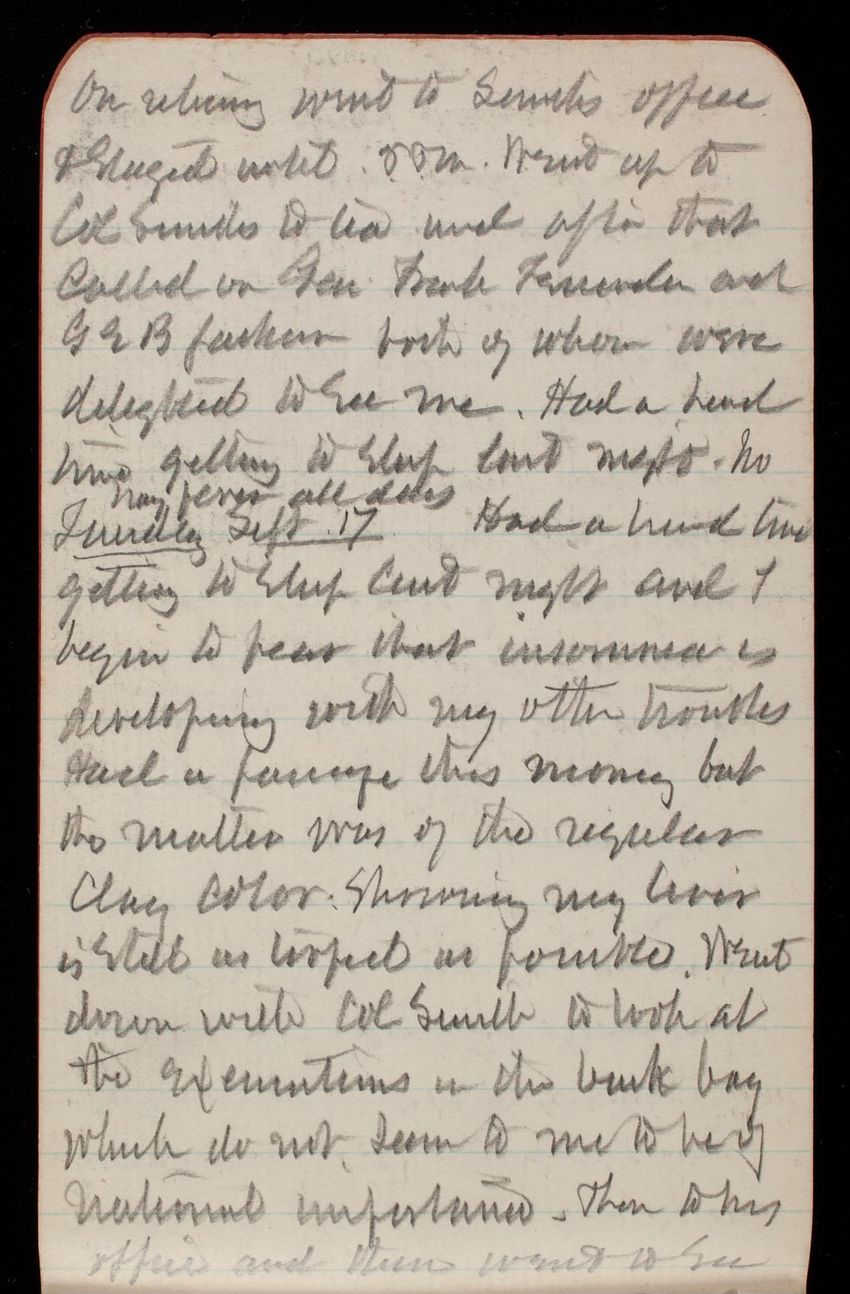 On retiring went to Smiths office
& Staged until . P M . Went up to
Col Smiths to tea and after that
Called on Gen Frank and
G & B Jackson both of whom were
delighted to See me . Had a hard
time getting to Sleep last night . No
hay fever all day
Tuesday Sept . 17 Had a hard time
getting to Sleep last night and I
begin to fear that insomnia is
developing with my other troubles
Had a passage this morning but
the matter was of the regular
Clay Color . Showing my liver
is Still as torpid as possible . Went
down with Col Smith to look at
the Excavations in the back bay
which do not Seem to me to be of
National importance - Then to his
office and then went to See